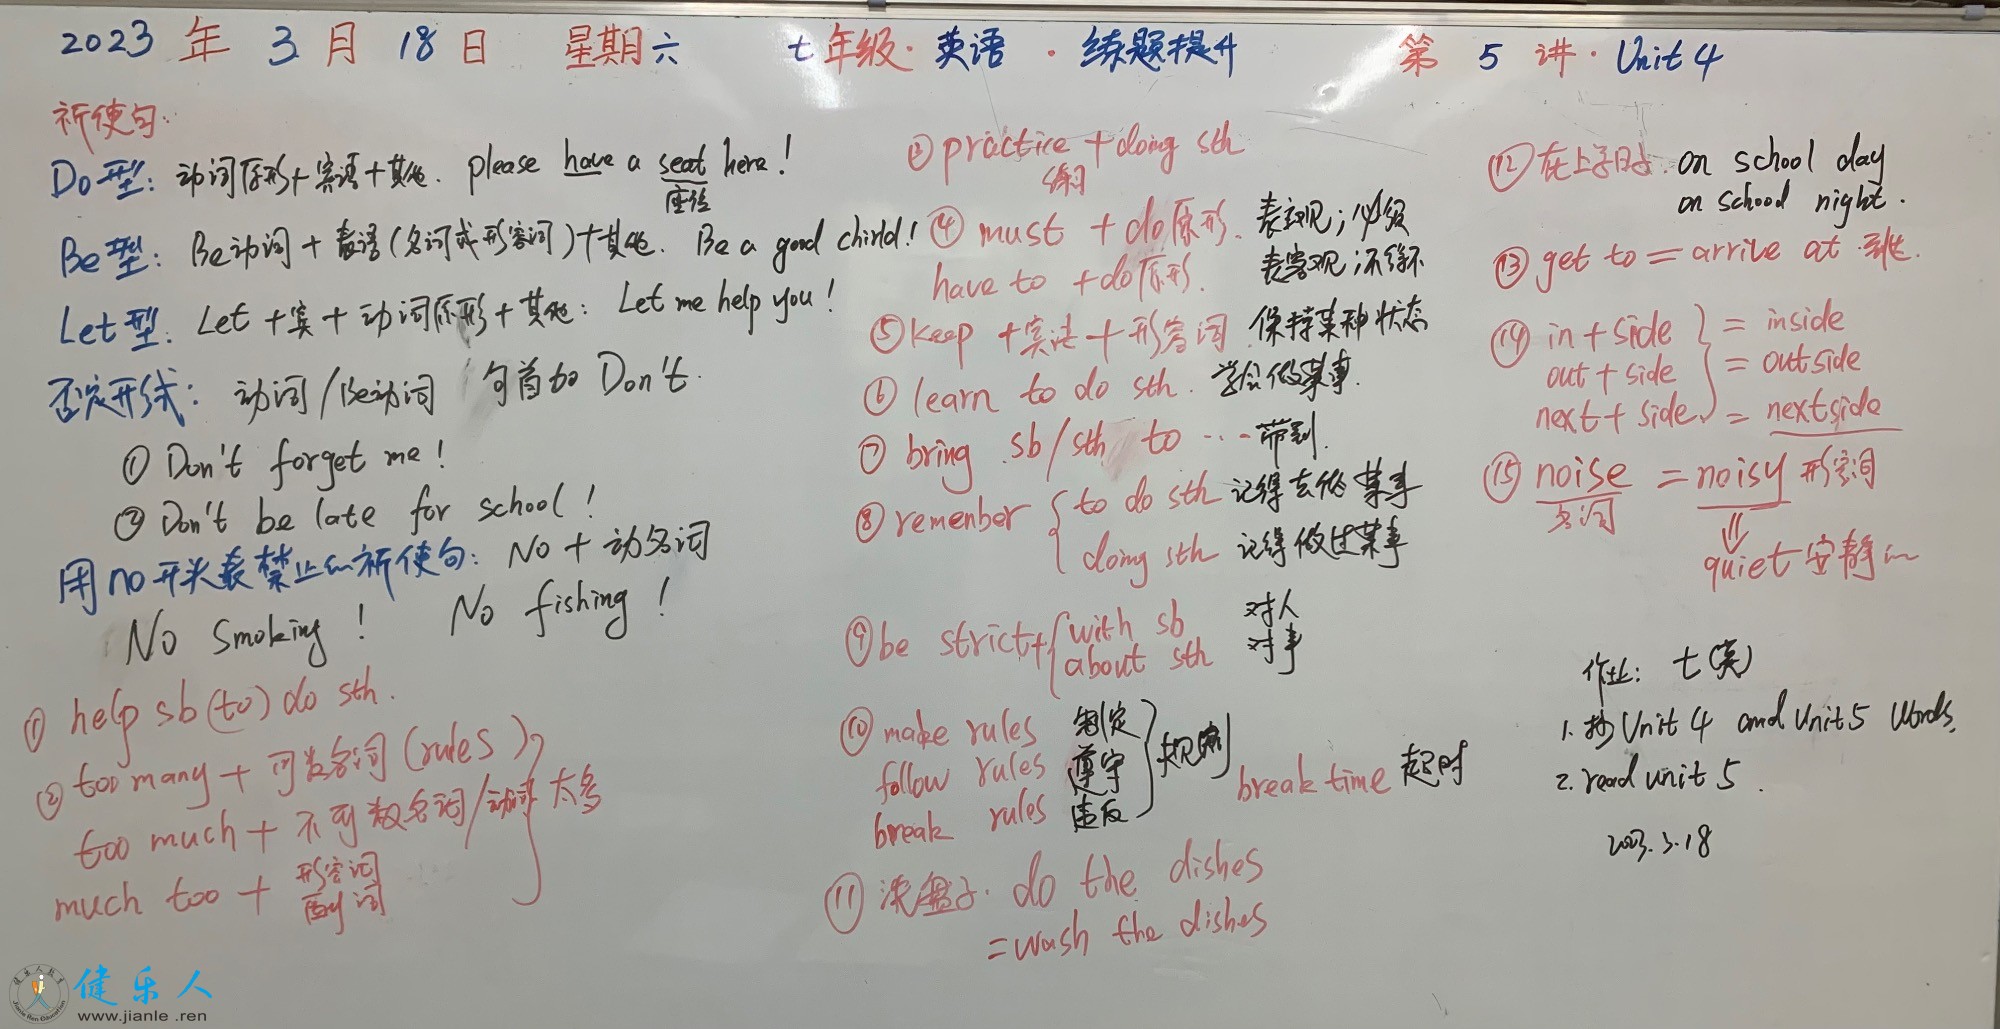 2023 年 3 月 18 日 星期六 七年级·英语·练题提升 第 5 讲·Unit 4
祈使句:
Do型: 动词原形+宾语+其他. please have a seat here!
座位
Be型: Be动词+表语(名词或形容词)+其他. Be a good child!
Let型: Let+宾+动词原形+其他: Let me help you!
否定形式: 动词/Be动词 句首加 Don't.
① Don't forget me!
② Don't be late for school!
用no开头表禁止的祈使句: No+动名词
No smoking! No fishing!
① help sb (to) do sth.
② too many + 可数名词 (rules)
too much + 不可数名词/动词 太多
much too + 形容词
副词
③ practice + doing sth
练习
④ must + do原形. 表主观; 必须
have to + do原形. 表客观; 不得不
⑤ keep + 宾语 + 形容词 保持某种状态
⑥ learn to do sth. 学会做某事.
⑦ bring sb/sth to ··· 带到.
⑧ remenber to do sth 记得去做某事
doing sth 记得做过某事
⑨ be strict+ with sb 对人
about sth 对事
⑩ make rules 制定
follow rules 遵守 规则
break rules 违反
break time 超时
⑪ 洗盘子. do the dishes
=wash the dishes
⑫ 在上学日子. on school day
on school night.
⑬ get to = arrive at 到达.
⑭ in + side = inside
out + side = outside
next + side = nextside
⑮ noise = noisy 形容词
名词
quiet 安静的
作业: 七(英)
1. 抄Unit 4 and Unit 5 Words.
2. read unit 5.
2023.3.18
健乐人
www.jianle.ren